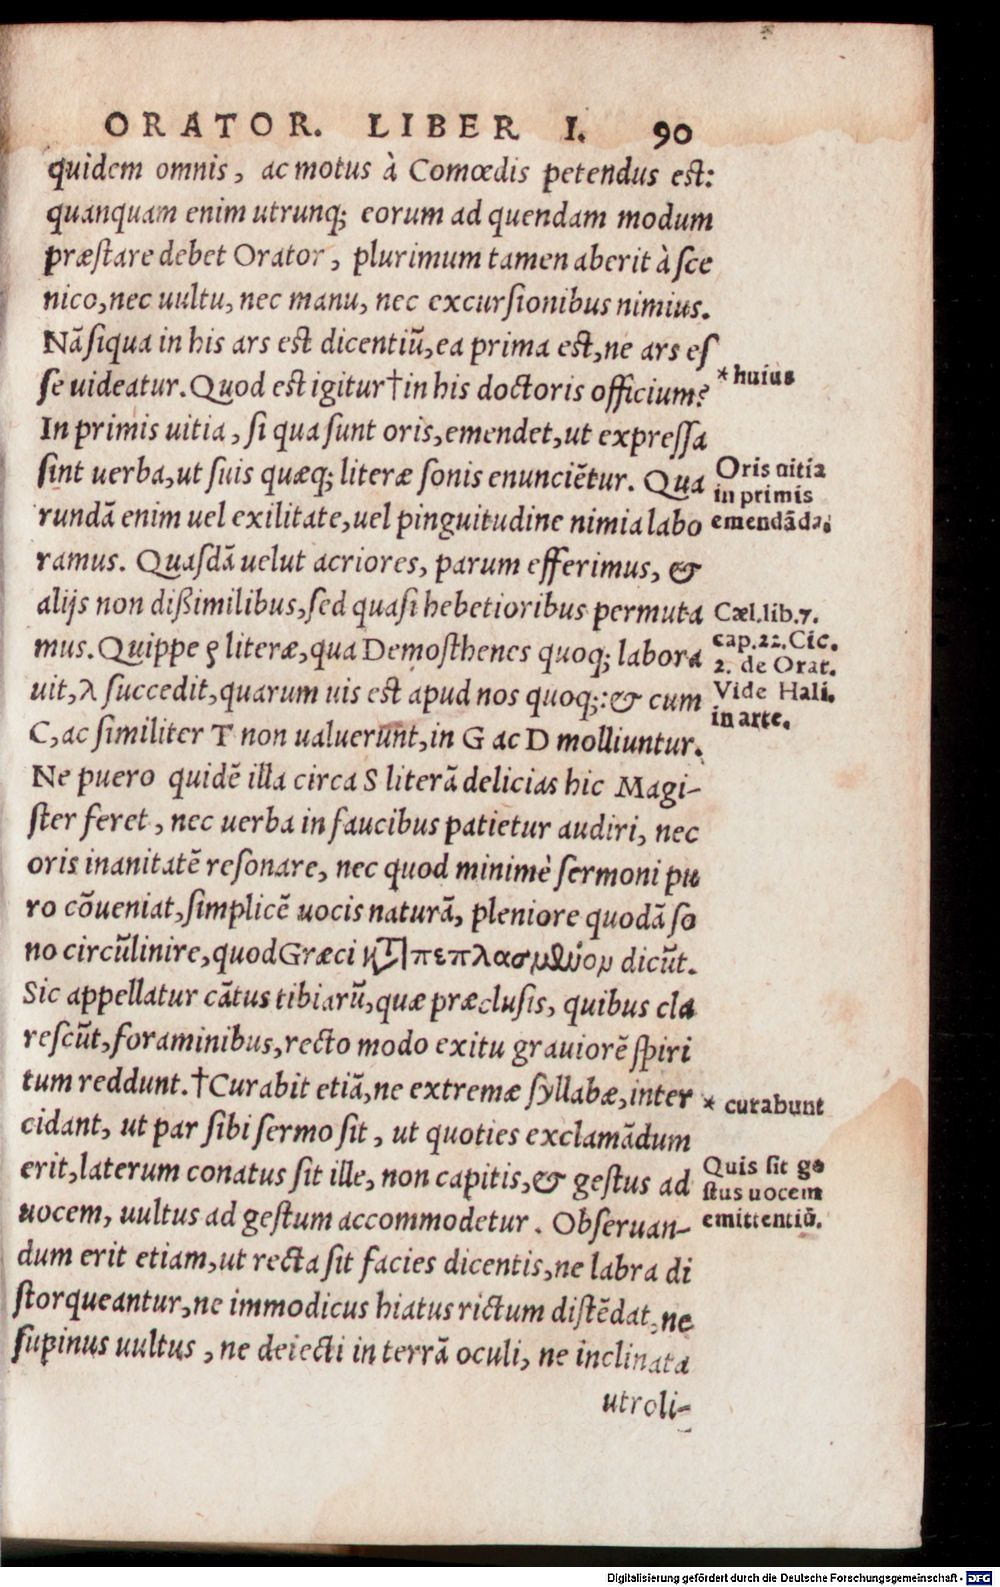 ORATOR. LIBER I. 90
quidem omnis, ac motus à Comœdis petendus est:
quanquam enim utrunq; eorum ad quendam modum
præstare debet Orator, plurimum tamen aberit à sce
nico, nec uultu, nec manu, nec excursionibus nimius.
Nā siqua in his ars est dicentiū, ea prima est, ne ars es
se uideatur. Quod est igitur † in his doctoris officium?
* huius
In primis uitia, si qua sunt oris, emendet, ut expressa
sint uerba, ut suis quæq; literæ sonis enunciētur. Qua
rundā enim uel exilitate, uel pinguitudine nimia labo
Oris uitia
in primis
emendāda.
ramus. Quasdā uelut acriores, parum efferimus, &
alijs non dißimilibus, sed quasi hebetioribus permuta
mus. Quippe ρ literæ, qua Demosthenes quoq; labora
uit, λ succedit, quarum uis est apud nos quoq;: & cum
C, ac similiter T non ualuerunt, in G ac D molliuntur.
Cæl. lib. 7.
cap. 22. Cic.
2. de Orat.
Vide Hali.
in arte.
Ne puero quidē illa circa S literā delicias hic Magi-
ster feret, nec uerba in faucibus patietur audiri, nec
oris inanitatē resonare, nec quod minimè sermoni pu
ro cōueniat, simplicē uocis naturā, pleniore quodā so
no circūlinire, quod Græci καταπεπλασμένον dicūt.
Sic appellatur cātus tibiarū, quæ præclusis, quibus cla
rescūt, foraminibus, recto modo exitu grauiorē spiri
tum reddunt. † Curabit etiā, ne extremæ syllabæ, inter
* curabunt
cidant, ut par sibi sermo sit, ut quoties exclamādum
erit, laterum conatus sit ille, non capitis, & gestus ad
uocem, uultus ad gestum accommodetur. Obseruan-
Quis sit ge
stus uocem
emittentiū.
dum erit etiam, ut recta sit facies dicentis, ne labra di
storqueantur, ne immodicus hiatus rictum distēdat, ne
supinus uultus, ne deiecti in terrā oculi, ne inclinata
utroli-
Digitalisierung gefördert durch die Deutsche Forschungsgemeinschaft - DFG